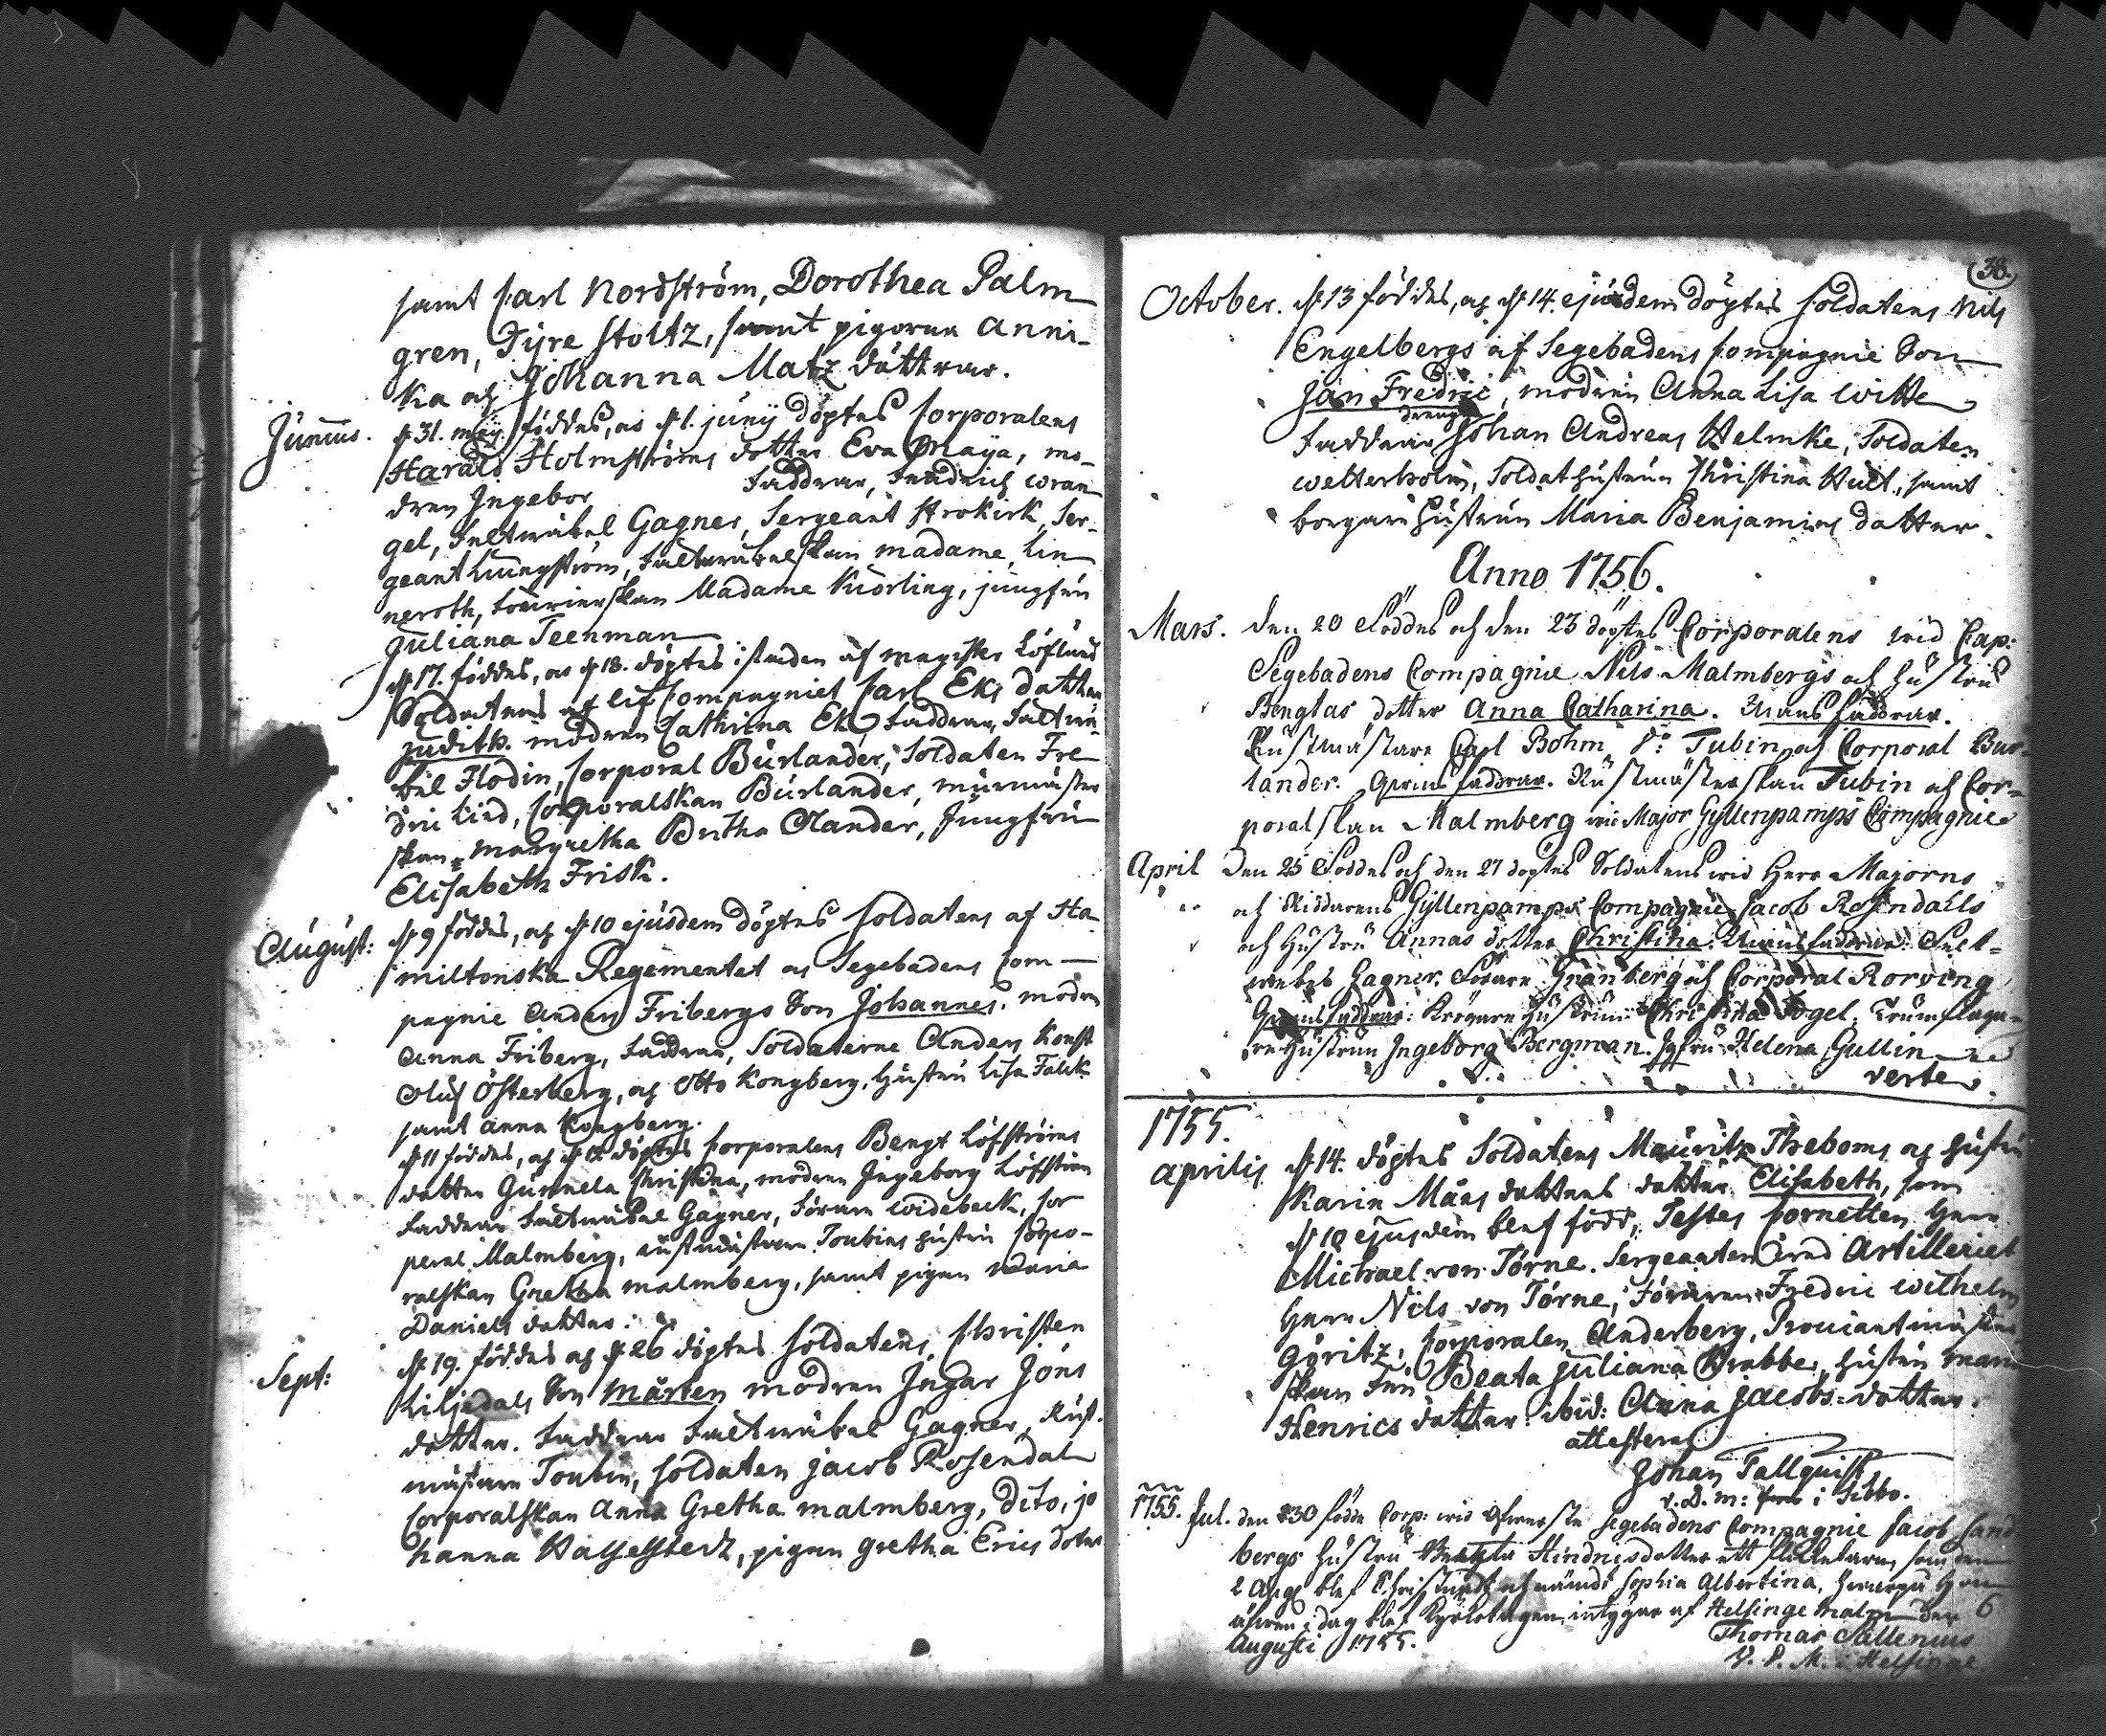 samt Carl Nordström, Dorothea Palm
gren, Fijre Stoltz, samt pigorna Anni-
ka och Johanna Matz döttrar.
Junius. d 31. maij föddes, och d 1. junij döptes Corporalens
Harald Holmströms dotter Eva Maija, mo-
dren Ingebor Faddrar, Fradrich wran
gel, Feltwäbel Gagner, Sergeant Strokirk, Ser-
geant Liungström, Faltwäbelskan madame Lin
neroth, Fourierskan Madame Kiörling, jungfru
Juliana Teenman
d 17. föddes, och d 18. döptes i staden af magister Löflund
Soldatens af lif Compagniet Carl Eks dotter
Judith. modren Cathrina Ek, Faddrar, Faltwä-
bel Flodin, Corporal Burlander, Soldaten Fre
dric Lind, Corporalskan Burlander, murmäster
skan Margretha Birtha Clander, Jungfru
Elisabeth Frisk.
August: d 9 föddes, och d 10 ejusdem döptes Soldatens af Ha
miltonska Regementet och Segebadens Com-
pagnie Anders Fribergs Son Johannes. modren
Anna Friberg, Faddrar, Soldaterne Anders Konst
Oluf Österberg, och Otto Kongberg, hustru Lisa Falck
samt Anna Kongberg.
d 11 föddes, och d 12 döptes Corporalens Bengt Löfströms
dotter Gunnela Christina, modren Ingeborg Löfström
Faddrar Faltwäbel Gagner, Förare Widebeck, Cor
peral Malmberg, rustmästare Toubins hustru Corpo-
ralskan Gretha malmberg, samt pigan Maria
Daniels dotter.
Sept: d 19. föddes och d 26 döptes Soldatens, Christen
Liljedals Son Mårten modren Ingar Jöns
dotter. Faddrar Faltwäbel Gagner, Rust-
mästare Toubin, Soldaten Jacob Rosendal
Corporalskan Anna Gretha malmberg, dito, jo
hanna Hasselstedt, pigan Gretha Erics doter
38.
October. d 13 föddes, och d 14. ejusdem döptes Soldatens Nils
Engelbergs af Segebadens Compagnie Son
Jan Fredric, modren Anna Lisa Witte
Faddrar dreng Johan Andreas Helmke, Soldaten
Wetterholm, Soldat hustrun Christina Hult, samt
borgare hustrun Maria Benjamins dotter.
Anno 1756.
Mars. den 20 Föddes och den 23 döptes Corporalens wid Cap:
Segebadens Compagnie Nils Malmbergs och hustru
Bengtas dotter Anna Catharina. Mans faddrar.
Rustmästare Carl Bohm, d:o Tubin och Corporal Bur-
lander. Qwinns faddrar. Rustmästerskan Tubin och Cor-
poralskan Malmberg wid Major Gyllenpamps Compagnie
April den 25 Föddes och den 27 döptes Soldatens wid Herr Majorns
och Riddarens Gyllenpamps Compagnie Jacob Rosendahls
och hustru Annas dotter Christina. Mansfaddrar. Felt-
webel Gagner. Förare Granberg och Corporal Rorving
Qwinsfaddrar: Krögare hustrun Christina Fogel. Trumslaga-
re hustrun Ingeborg Bergman. Jgfru Helena Gullin
verte.
1755.
Aprilis d 14. döptes Soldatens Mauritz Theboms och hustru
Karin Måns dotters dotter Elisabeth, som
d 10 ejusdem blef född, Testes Cornetten Herr
Michael von Törne. Sergeanten wid Artilleriet
Herr Nils von Törne, Föraren Fredric Wilhelm
Göritz, Corporalen Anderberg, Proviantmäster
skan Fru Beata Juliana Krabbe, hustru Mari
Henrics dotter: ibid: Anna Jacobs-dotter.
attesteras
Johan Tallquist
v. D. m: i Sibbo.
1755. Jul. den 30 födde Corp: wid Öfwerste Segebadens Compagnie Jacob Sand
bergs hustru Hindrisdotter ett flickebarn, som den
2 Aug blef Christnadt och nämdt Sophia Albertina, hwarpå hon
äfwen i dag blef Kyrktagen, intygar af Helsinge malm den 6
Augusti 1755.
Thomas Sallenius
V. D. M. i Helsinge